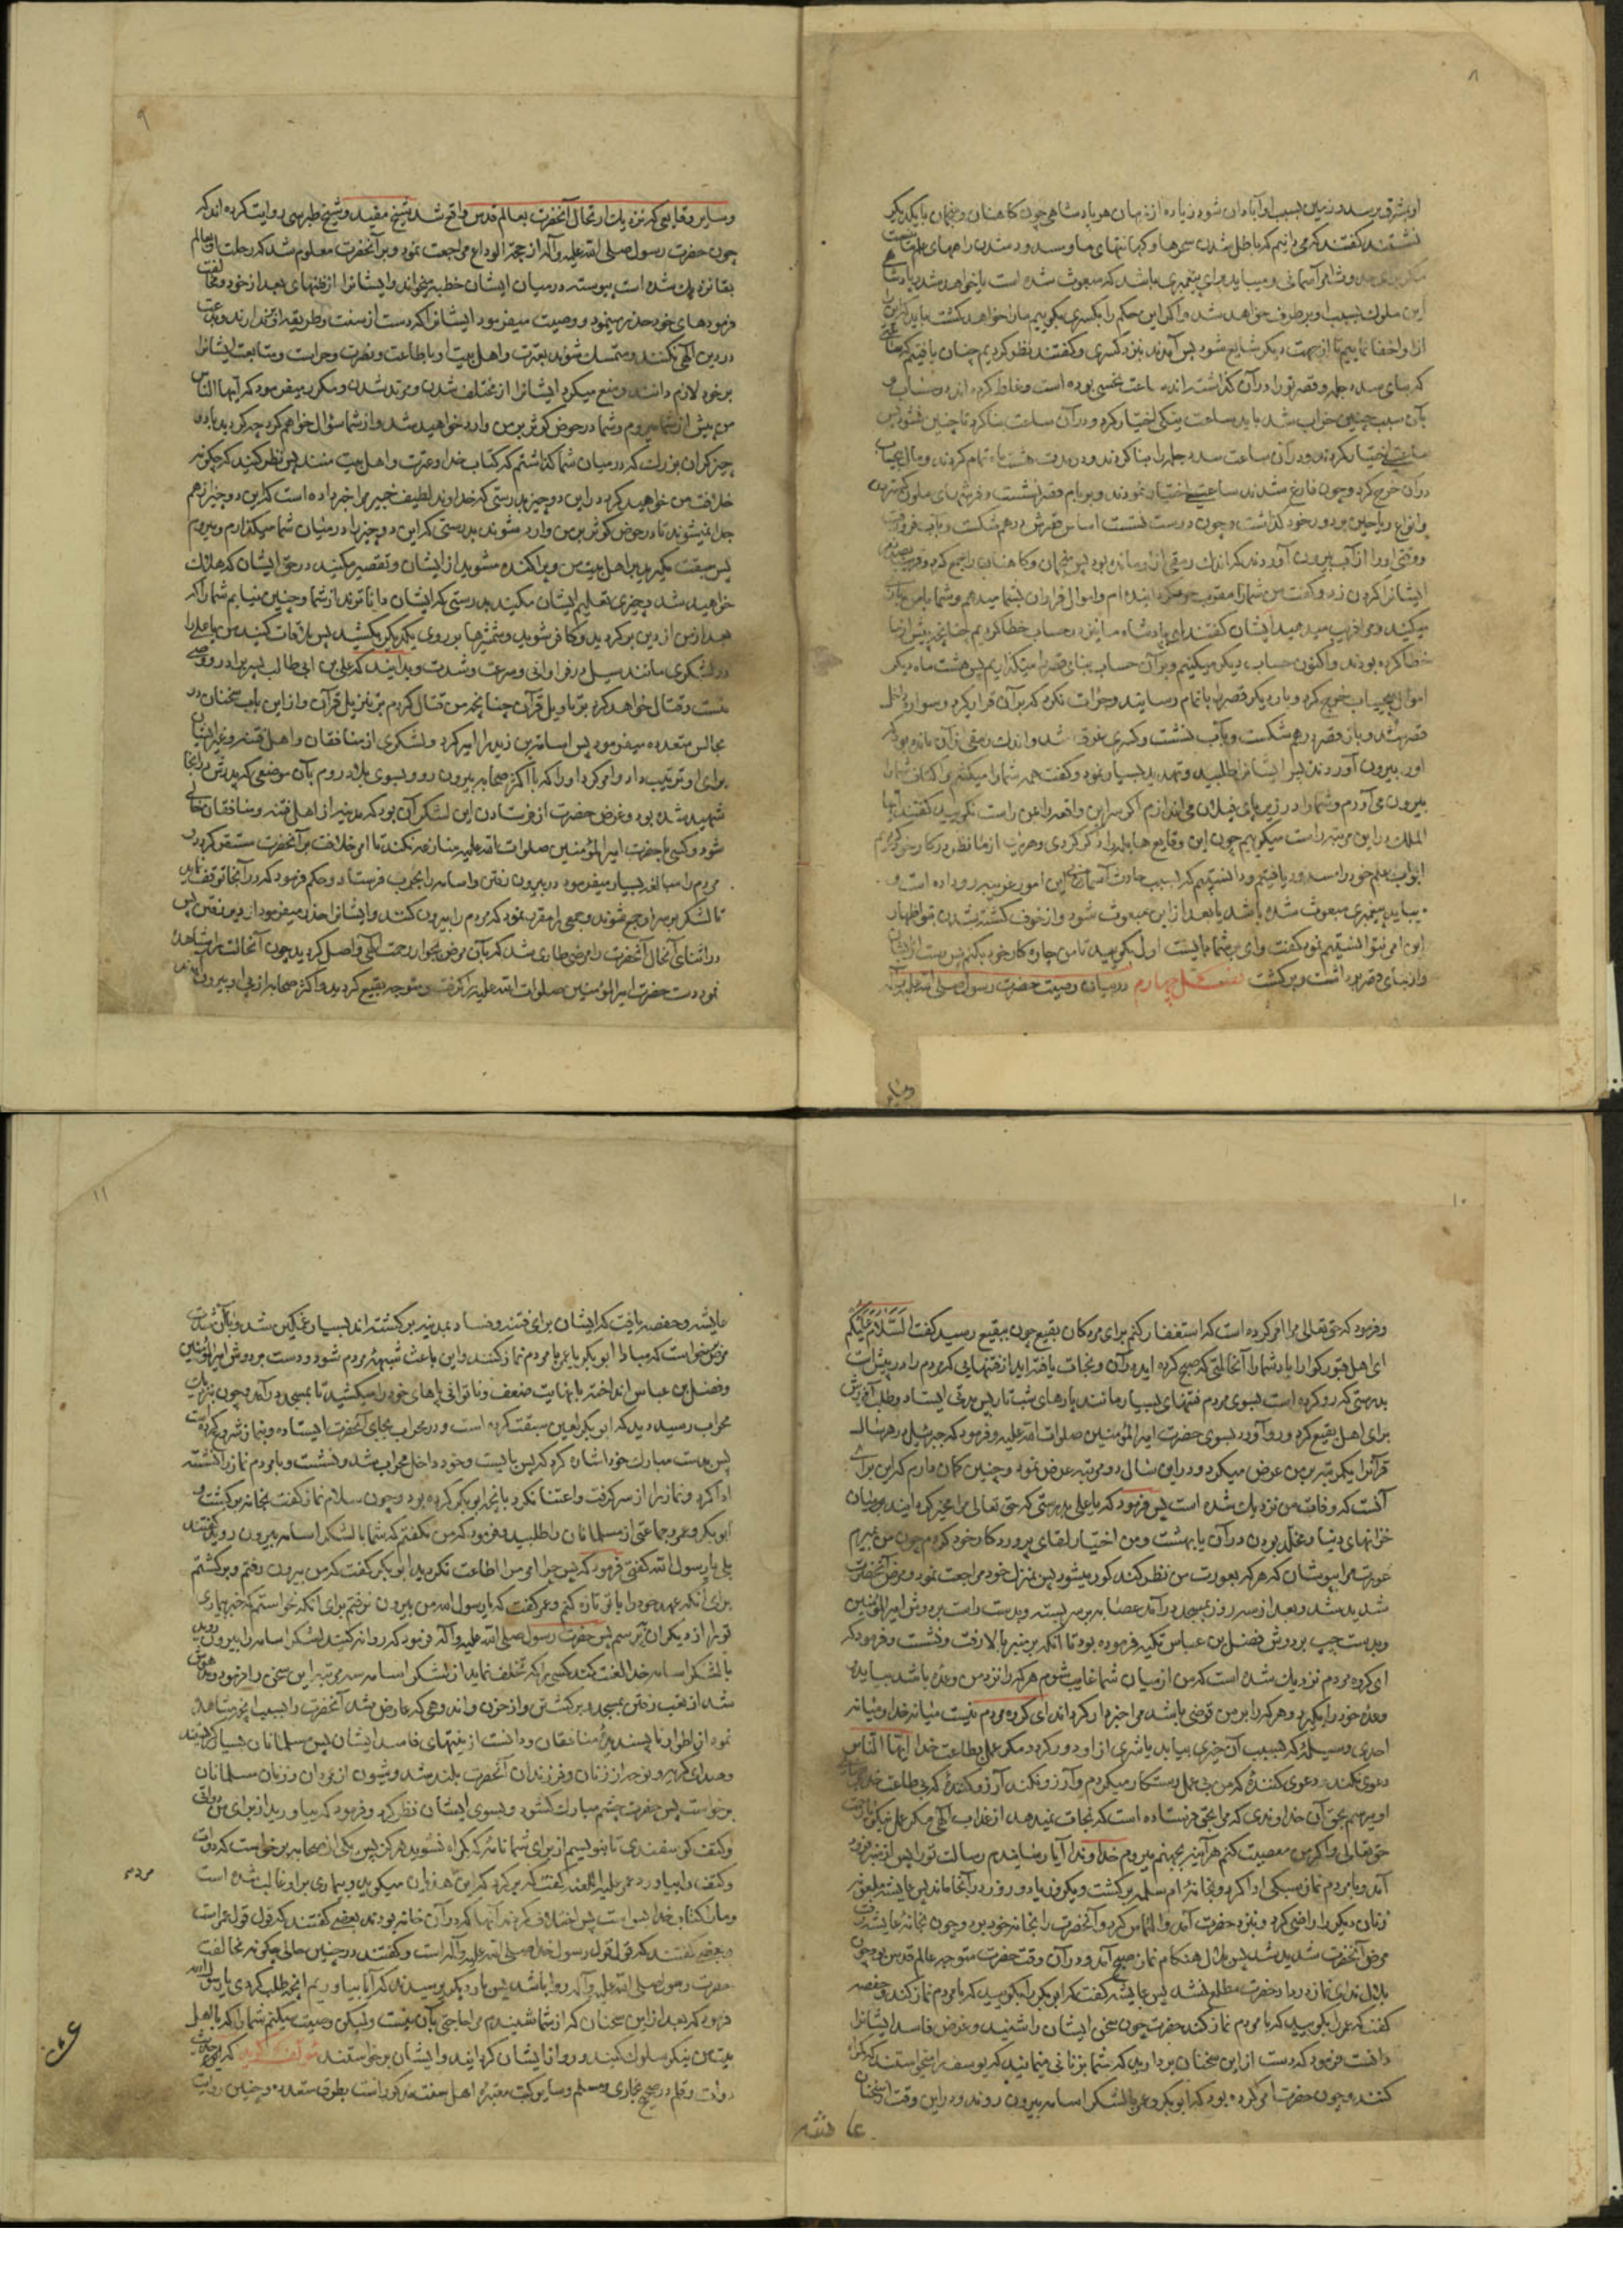 ۸
او بمشرق برسد و زمین بسبب او آبادان شود زیاده از زمان هر پادشاهی چون کاهنان و منجمان با یکدیگر
نشستند گفتند که می دانیم که باطل شدن سحرها و کهانتهای ما و مسدود شدن راههای علم ما نیست
مگر برای حدوث امر آسمانی و میباید برای پیغمبری باشد که مبعوث شده است یا خواهد شد و پادشاهی
این ملوک بسبب او برطرف خواهد شد و اگر این حکم را بکسری بگوییم ما را خواهد کشت باید که این را
ازو اخفا نماییم تا از جهت دیگر شایع شود پس آمدند بنزد کسری و گفتند نظر کردیم چنان یافتیم که ساعتی
که بنای سد دجله و قصر تو را در آن گذاشته اند ساعت نحسی بوده است و غلط کرده اند در حساب و
بآن سبب چنین خراب شد باید ساعت نیکی اختیار کرد و در آن ساعت بنا کرد تا چنین نشود پس
ساعتی اختیار کردند و در آن ساعت سد دجله را بنا کردند و در مدت هشت ماه تمام کردند و مال بیحساب
در آن خرج کرد و چون فارغ شدند ساعتی اختیار نمودند و بر بام قصر نشست و فرشهای ملون گستردند
و انواع ریاحین بر دور خود گذاشت و چون درست نشست اساس قصرش درهم شکست و بآب فرو رفت
و وقتی او را از آب بیرون آوردند که اندک رمقی ازو مانده بود پس منجمان و کاهنان را جمع کرد و قریب بصد نفر
ایشانرا گردن زد و گفت من شما را مقرب خود گردانیده ام و اموال فراوان بشما میدهم و شما با من بازی
میکنید و مرا فریب میدهید ایشان گفتند ای پادشاه ما نیز در حساب خطا کردیم چنانچه پیش از ما
خطا کرده بودند و اکنون حساب دیگر میکنیم و بر آن حساب بنای قصر را میگذاریم پس هشت ماه دیگر
اموال بیحساب خرج کرد و بار دیگر قصر را باتمام رسانیدند و جرات نکرد که بر آن قرار گیرد و سواره داخل
قصر شد و باز قصر درهم شکست و بآب نشست و کسری غرق شد و اندک رمقی از آن مانده بود که
او را بیرون آوردند پس ایشانرا طلبید و تهدید بسیار نمود و گفت همه شما را میکشم و اکتاف شما را
بیرون می آورم و شما را در زیر پای فیلان می اندازم اگر سر این واقعه را بمن راست نگویید گفتند ایها
الملک در این مرتبه راست میگوییم چون این وقایع هایله را ذکر کردی و هر یک از ما نظر در کار خود کردیم
ابواب علم خود را مسدود یافتیم و دانستیم که بسبب حادث آسمانی این امور غریبه رو داده است و
میباید پیغمبری مبعوث شده باشد یا بعد از این مبعوث شود و از خوف کشته شدن بتو اظهار
این امر نتوانستیم نمود گفت وای بر شما بایست اول بگویید تا من چاره کار خود بکنم پس دست از ایشان
و از بنای قصر برداشت و برگشت فصل چهارم در بیان وصیت حضرت رسول صلی الله علیه و آله
وسایر
۹
و سایر وقایعی که نزدیک ارتحال آنحضرت بعالم قدس واقع شد شیخ مفید و شیخ طبرسی روایت کرده اند که
چون حضرت رسول صلی الله علیه و آله از حجة الوداع مراجعت نمود و بر آنحضرت معلوم شد که رحلت او بعالم
بقا نزدیک شده است پیوسته در میان ایشان خطبه میخواند و ایشانرا از فتنهای بعد از خود و مخالفت
فرمودهای خود حذر مینمود و وصیت میفرمود ایشانرا که دست از سنت و طریقه او بر ندارند و بدعت
در دین الهی نکنند و متمسک شوند بعترت و اهل بیت او باطاعت و نصرت و حراست و متابعت ایشانرا
بر خود لازم دانند و منع میکرد ایشانرا از مختلف شدن و مرتد شدن و مکرر میفرمود که ایها الناس
من پیش از شما میروم و شما در حوض کوثر بر من وارد خواهید شد و از شما سؤال خواهم کرد که چه کردید با دو
چیز گران بزرگ که در میان شما گذاشتم که کتاب خدا و عترت و اهل بیت منند پس نظر کنید که چگونه
خلافت من خواهید کرد در این دو چیز بدرستی که خداوند لطیف خبیر مرا خبر داده است که این دو چیز از هم
جدا نمیشوند تا در حوض کوثر بر من وارد شوند بدرستی که این دو چیز را در میان شما میگذارم و میروم
پس سبقت مگیرید بر اهل بیت من و پراکنده مشوید از ایشان و تقصیر مکنید در حق ایشان که هلاک
خواهید شد و چیزی تعلیم ایشان مکنید بدرستی که ایشان داناترند از شما و چنین نیابم شما را که
بعد از من از دین برگردید و کافر شوید و شمشیرها بر روی یکدیگر بکشید پس ملاقات کنید من یا علی را
در لشکری مانند سیل در فراوانی و سرعت و شدت و بدانید که علی بن ابی طالب پسر برادر و وصی
منست و قتال خواهد کرد بر تاویل قرآن چنانچه من قتال کردم بر تنزیل قرآن و از این باب سخنان در
مجالس متعدده میفرمود پس اسامة بن زید را امیر کرد و لشکری از منافقان و اهل فتنه و غیر ایشان
برای او ترتیب داد و امر کرد او را که با اکثر صحابه بیرون رود بسوی بلاد روم بآن موضعی که پدرش در آنجا
شهید شده بود و غرض حضرت از فرستادن این لشکر آن بود که مدینه از اهل فتنه و منافقان خالی
شود و کسی با حضرت امیرالمؤمنین صلوات الله علیه منازعه نکند تا امر خلافت بر آنحضرت مستقر گردد
مردم را مبالغه بسیار میفرمود در بیرون رفتن و اسامه را بجرف فرستاد و حکم فرمود که در آنجا توقف نماید
تا لشکر بر سر او جمع شوند و جمعی را مقرر نمود که مردم را بیرون کنند و ایشانرا حذر میفرمود از دیر رفتن پس
در اثنای آنحال آنحضرت را مرضی طاری شد که بآن مرض بجوار رحمت الهی واصل گردید چون آنحالت را مشاهده
نمود دست حضرت امیرالمؤمنین صلوات الله علیه را گرفت و متوجه بقیع گردید و اکثر صحابه از پی او بیرون آمدند
۱۰
و فرمود که حق تعالی مرا امر کرده است که استغفار کنم برای مردگان بقیع چون ببقیع رسید گفت السَّلَامُ عَلَیْکُم
ای اهل قبور گوارا باد شما را آنحالتی که صبح کرده اید در آن و نجات یافته اید از فتنهایی که مردم را در پیش است
بدرستی که رو کرده است بسوی مردم فتنهای بسیار مانند پارهای شب تار پس مدتی ایستاد و طلب آمرزش
برای اهل بقیع کرد و رو آورد بسوی حضرت امیرالمؤمنین صلوات الله علیه و فرمود که جبرئیل در هر سال
قرآنرا یکمرتبه بر من عرض میکرد و در این سال دو مرتبه عرض نمود و چنین گمان دارم که این برای
آنست که وفات من نزدیک شده است پس فرمود که یا علی بدرستی که حق تعالی مرا مخیر گردانید میان
خزانهای دنیا و مخلد بودن در آن یا بهشت و من اختیار لقای پروردگار خود کردم چون من بمیرم
عورت مرا بپوشان که هر که بعورت من نظر کند کور میشود پس بمنزل خود مراجعت نمود و مرض آنحضرت
شدید شد و بعد از سه روز بمسجد در آمد عصابه بر سر بسته و بدست راست بر دوش امیرالمؤمنین
و بدست چپ بر دوش فضل بن عباس تکیه فرموده بود تا آنکه بر منبر بالا رفت و نشست و فرمود که
ای گروه مردم نزدیک شده است که من از میان شما غایب شوم هر که را نزد من وعده باشد بیاید
وعده خود را بگیرد و هر که را بر من قرضی باشد مرا خبردار گرداند ای گروه مردم نیست میانه خدا و میانه
احدی وسیله که بسبب آن خیری بیابد یا شری از او دور گردد مگر عمل بطاعت خدا ایها الناس
دعوی نکند دعوی کننده که من بی عمل رستگار میگردم و آرزو نکند آرزو کننده که بی طاعت خدا برضای
او میرسم بحق آن خداوندی که مرا بحق فرستاده است که نجات نمیدهد از عذاب الهی مگر عمل نیکو با رحمت
حق تعالی و اگر من معصیت کنم هر آینه بجهنم میروم خداوندا آیا رسانیدم رسالت تو را پس از منبر فرود
آمد و با مردم نماز سبکی ادا کرد و بخانه ام سلمه برگشت و یکروز یا دو روز در آنجا ماند پس عایشه ملعونه
زنان دیگر را راضی کرد و بنزد حضرت آمد و التماس کرد و آنحضرت را بخانه خود برد و چون بخانه عایشه رفت
مرض آنحضرت شدید شد پس بلال هنگام نماز صبح آمد و در آن وقت حضرت متوجه عالم قدس بود چون
بلال ندای نماز در داد حضرت مطلع نشد پس عایشه گفت که ابو بکر را بگویید که با مردم نماز کند و حفصه
گفت که عمر را بگویید که با مردم نماز کند حضرت چون سخن ایشان را شنید و غرض فاسد ایشانرا
دانست فرمود که دست از این سخنان بردارید که شما بزنانی میمانید که یوسف را میخواستند که گمراه
کنند و چون حضرت امر کرده بود که ابو بکر و عمر با لشکر اسامه بیرون روند و در این وقت از سخنان
عایشه
۱۱
عایشه و حفصه یافت که ایشان برای فتنه و فساد بمدینه برگشته اند بسیار غمگین شد و بآن شدت
مرض برخواست که مبادا ابو بکر یا عمر با مردم نماز کنند و این باعث شبهه مردم شود و دست بر دوش امیرالمؤمنین
و فضل بن عباس انداخته با نهایت ضعف و ناتوانی پاهای خود را میکشید تا بمسجد در آمد و چون بنزدیک
محراب رسید دید که ابو بکر لعین سبقت کرده است و در محراب بجای آنحضرت ایستاده و بنماز شروع کرده است
پس بدست مبارک خود اشاره کرد که پس بایست و خود داخل محراب شد و نشست و با مردم نماز را نشسته
ادا کرد و نماز را از سر گرفت و اعتنا نکرد بآنچه ابو بکر کرده بود و چون سلام نماز گفت بخانه برگشت و
ابو بکر و عمر و جماعتی از مسلمانان را طلبید و فرمود که من نگفتم که شما با لشکر اسامه بیرون روید گفتند
بلی یا رسول الله گفتی فرمود که پس چرا امر مرا اطاعت نکردید ابو بکر گفت که من بیرون رفتم و برگشتم
برای آنکه عهد خود را با تو تازه کنم و عمر گفت که یا رسول الله من بیرون نرفتم برای آنکه نخواستم که خبر بیماری
تو را از دیگران بپرسم پس حضرت رسول صلی الله علیه و آله فرمود که روانه کنید لشکر اسامه را بیرون روید
با لشکر اسامه خدا لعنت کند کسی را که تخلف نماید از لشکر اسامه سه مرتبه این سخن را فرمود و مدهوش
شد از تعب رفتن بمسجد و برگشتن و از حزن و اندوهی که عارض شد آنحضرت را بسبب آنچه مشاهده
نمود از اطوار ناپسندیده منافقان و دانست از نیتهای فاسد ایشان پس مسلمانان بسیار گریستند
و صدای گریه و نوحه از زنان و فرزندان آنحضرت بلند شد و شیون از مردان و زنان مسلمانان
برخواست پس حضرت چشم مبارک گشود و بسوی ایشان نظر کرد و فرمود که بیاورید از برای من دواتی
و کتف گوسفندی تا بنویسم از برای شما نامه که گمراه نشوید هرگز پس یکی از صحابه برخواست که دوات
و کتف را بیاورد عمر علیه اللعنه گفت که برگرد که این مرد هذیان میگوید و بیماری بر او غالب شده است
و ما را کتاب خدا بس است پس اختلاف کردند آنها که در آن خانه بودند بعضی گفتند که قول قول عمر است
و بعضی گفتند که قول قول رسول خدا صلی الله علیه و آله است و گفتند در چنین حالی چگونه مخالفت
حضرت رسول صلی الله علیه و آله روا باشد پس بار دیگر پرسیدند که آیا بیاوریم آنچه طلب کردی یا رسول الله
فرمود که بعد از این سخنان که از شما شنیدم مرا حاجتی بآن نیست ولیکن وصیت میکنم شما را که با اهل
بیت من نیکو سلوک کنید و رو از ایشان گردانید و ایشان برخواستند مؤلف گوید که این حدیث
دوات و قلم در صحیح بخاری و مسلم و سایر کتب معتبره اهل سنت مذکور است بطرق متعدده و چنین روایت